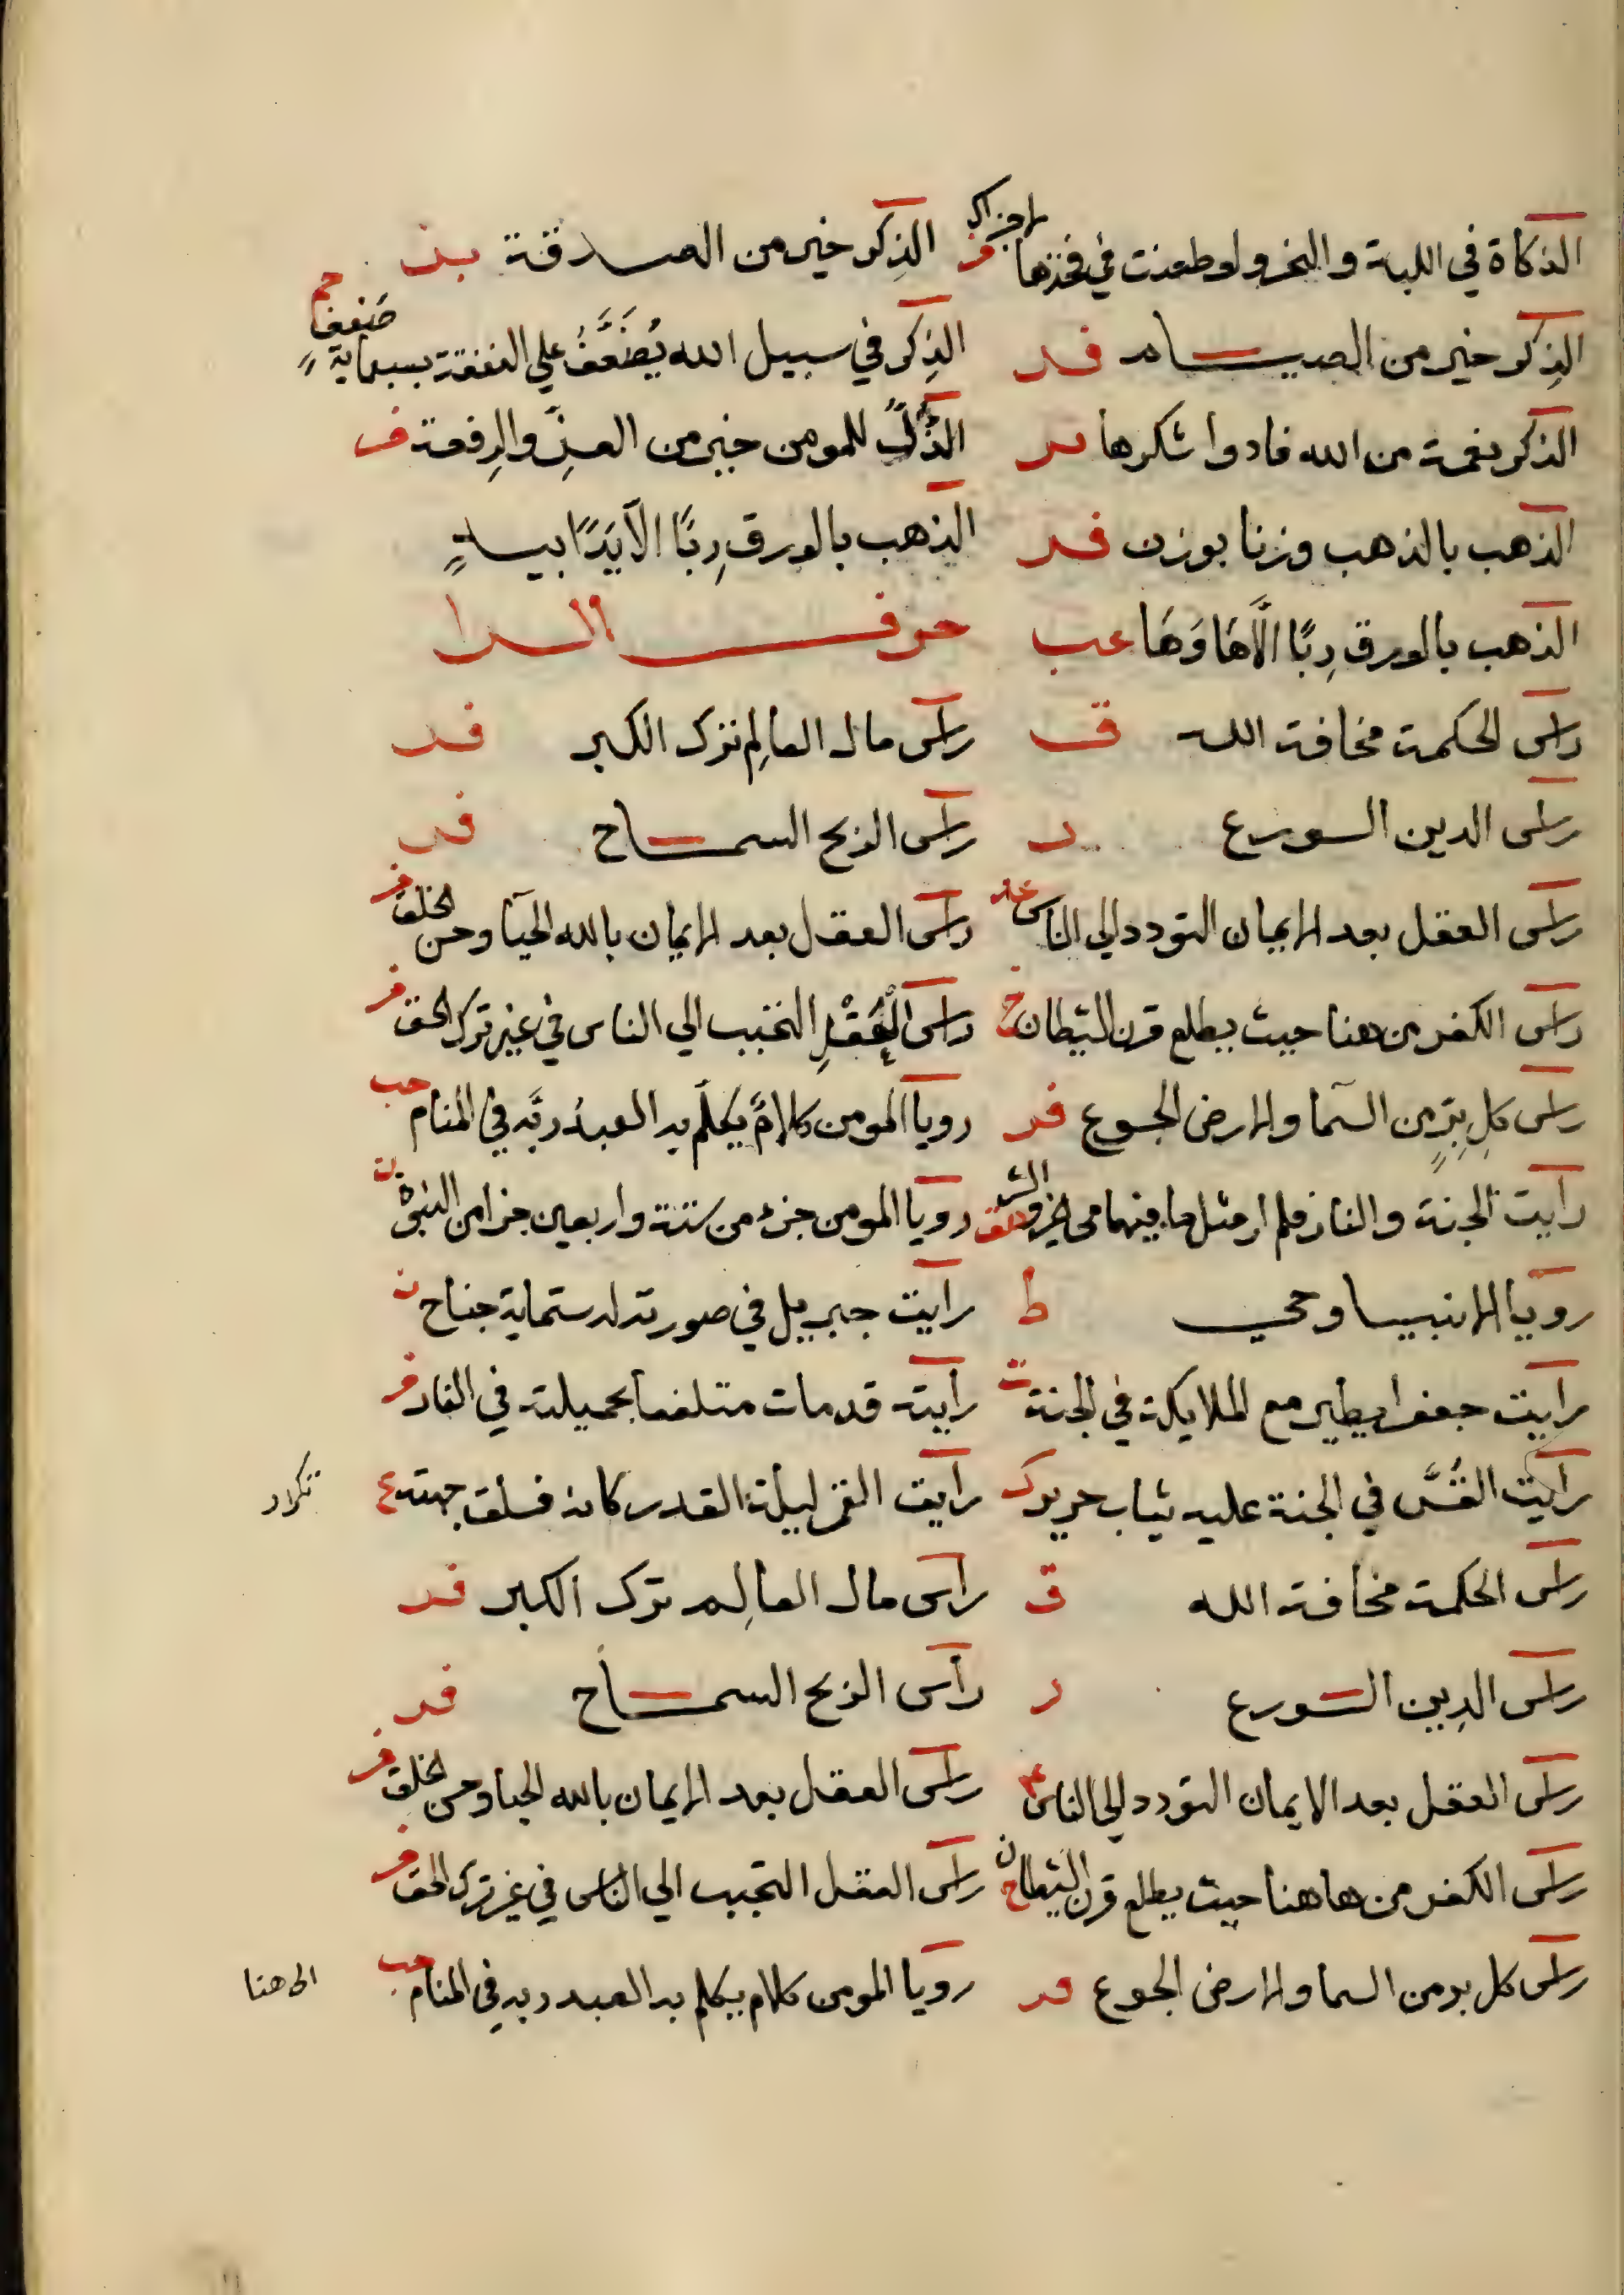 الذكاة في اللبة والنحر ولو طعنت في فخذها لاجزاك فر الذِكر خير من الصدقة بد
الذِكر خير من الصيام فد الذِكر في سبيل الله يُضَعَّفُ علي النفقة بسبماية ضِعفٍ حم
الذكر نعمة من الله فادوا شكرها فر الذُلُّ للمومن خير من العِزّ والرِفعة ف
الذهب بالذهب وزنا بوزن فد الذهب بالورق رِبًا الا يَدًا بيدٍ
الذهب بالورق رِبًا الَّا هَا وَهَا عب حرف الرا
راس الحكمة مخافة الله ق راس مال العالِم ترك الكبر فد
راس الدين الورع د راس الربح السماح فد
راس العقل بعد الايمان التودد الي الناس راس العقل بعد الايمان بالله الحيآ وحسن الخلق فر
راس الكفر من هنا حيث يطلع قرن الشيطان خ راس العَقْلِ التحبب الي الناس في غير ترك الحق فر
راس كل بِرٍّ من السمآ والارض الجوع فد رويا المومن كلامٌ يكلّم به العبدُ ربَّه في المنام حب
رايت الجنة والنار فلم ار مثل ما فيهما من الخير والشر رويا المومن جزء من ستة واربعين جزا من النبوة ت
رويا الانبيا وحي ط رايت جبريل في صورته له ستماية جناح ن
رايت جعفرا يطير مع الملايكة في الجنة ت رايته قد مات متلفعا بخميلته في النار فر
رايت القُسَّ في الجنة عليه ثياب حرير ك رايت القمر ليلة القدر كانه فلق جهنه ع تكرار
راس الحكمة مخافة الله ق راس مال العالِم ترك الكبر فد
راس الدِين الورع د راس الربح السماح فد
راس العقل بعد الايمان التودد الي الناس راس العقل بعد الايمان بالله الحيا وحسن الخلق فر
راس الكفر من هاهنا حيث يطلع قرن الشيطان خ راس العقل التحبب الي الناس في غير ترك الحق فر
راس كل بر من السما والارض الجوع فد رويا المومن كلام يكلم به العبد ربه في المنام حب الى هنا